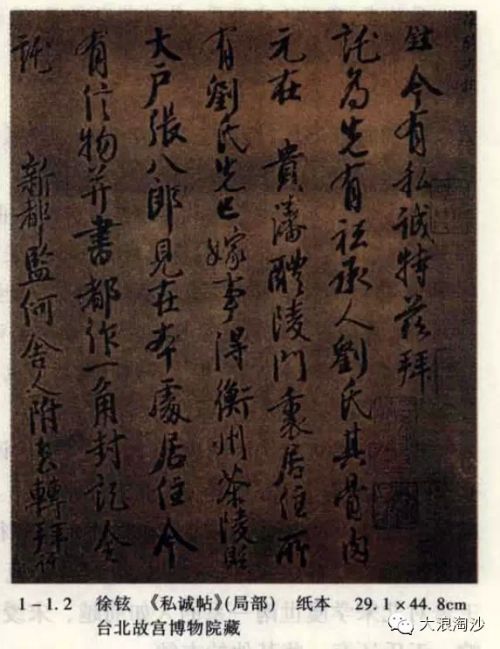 鉉今有私誠特茲拜
託為先有祗承人劉氏其骨肉
元在 貴藩醴陵門裏居住所
有劉氏先已嫁事得衡州茶陵縣
大户張八郎見在本處居住今
有信物并書都作一角封記全
託 新都監何舍人附去轉拜
1-1.2 徐铉 《私诚帖》(局部) 纸本 29.1×44.8cm
台北故宫博物院藏
大浪淘沙